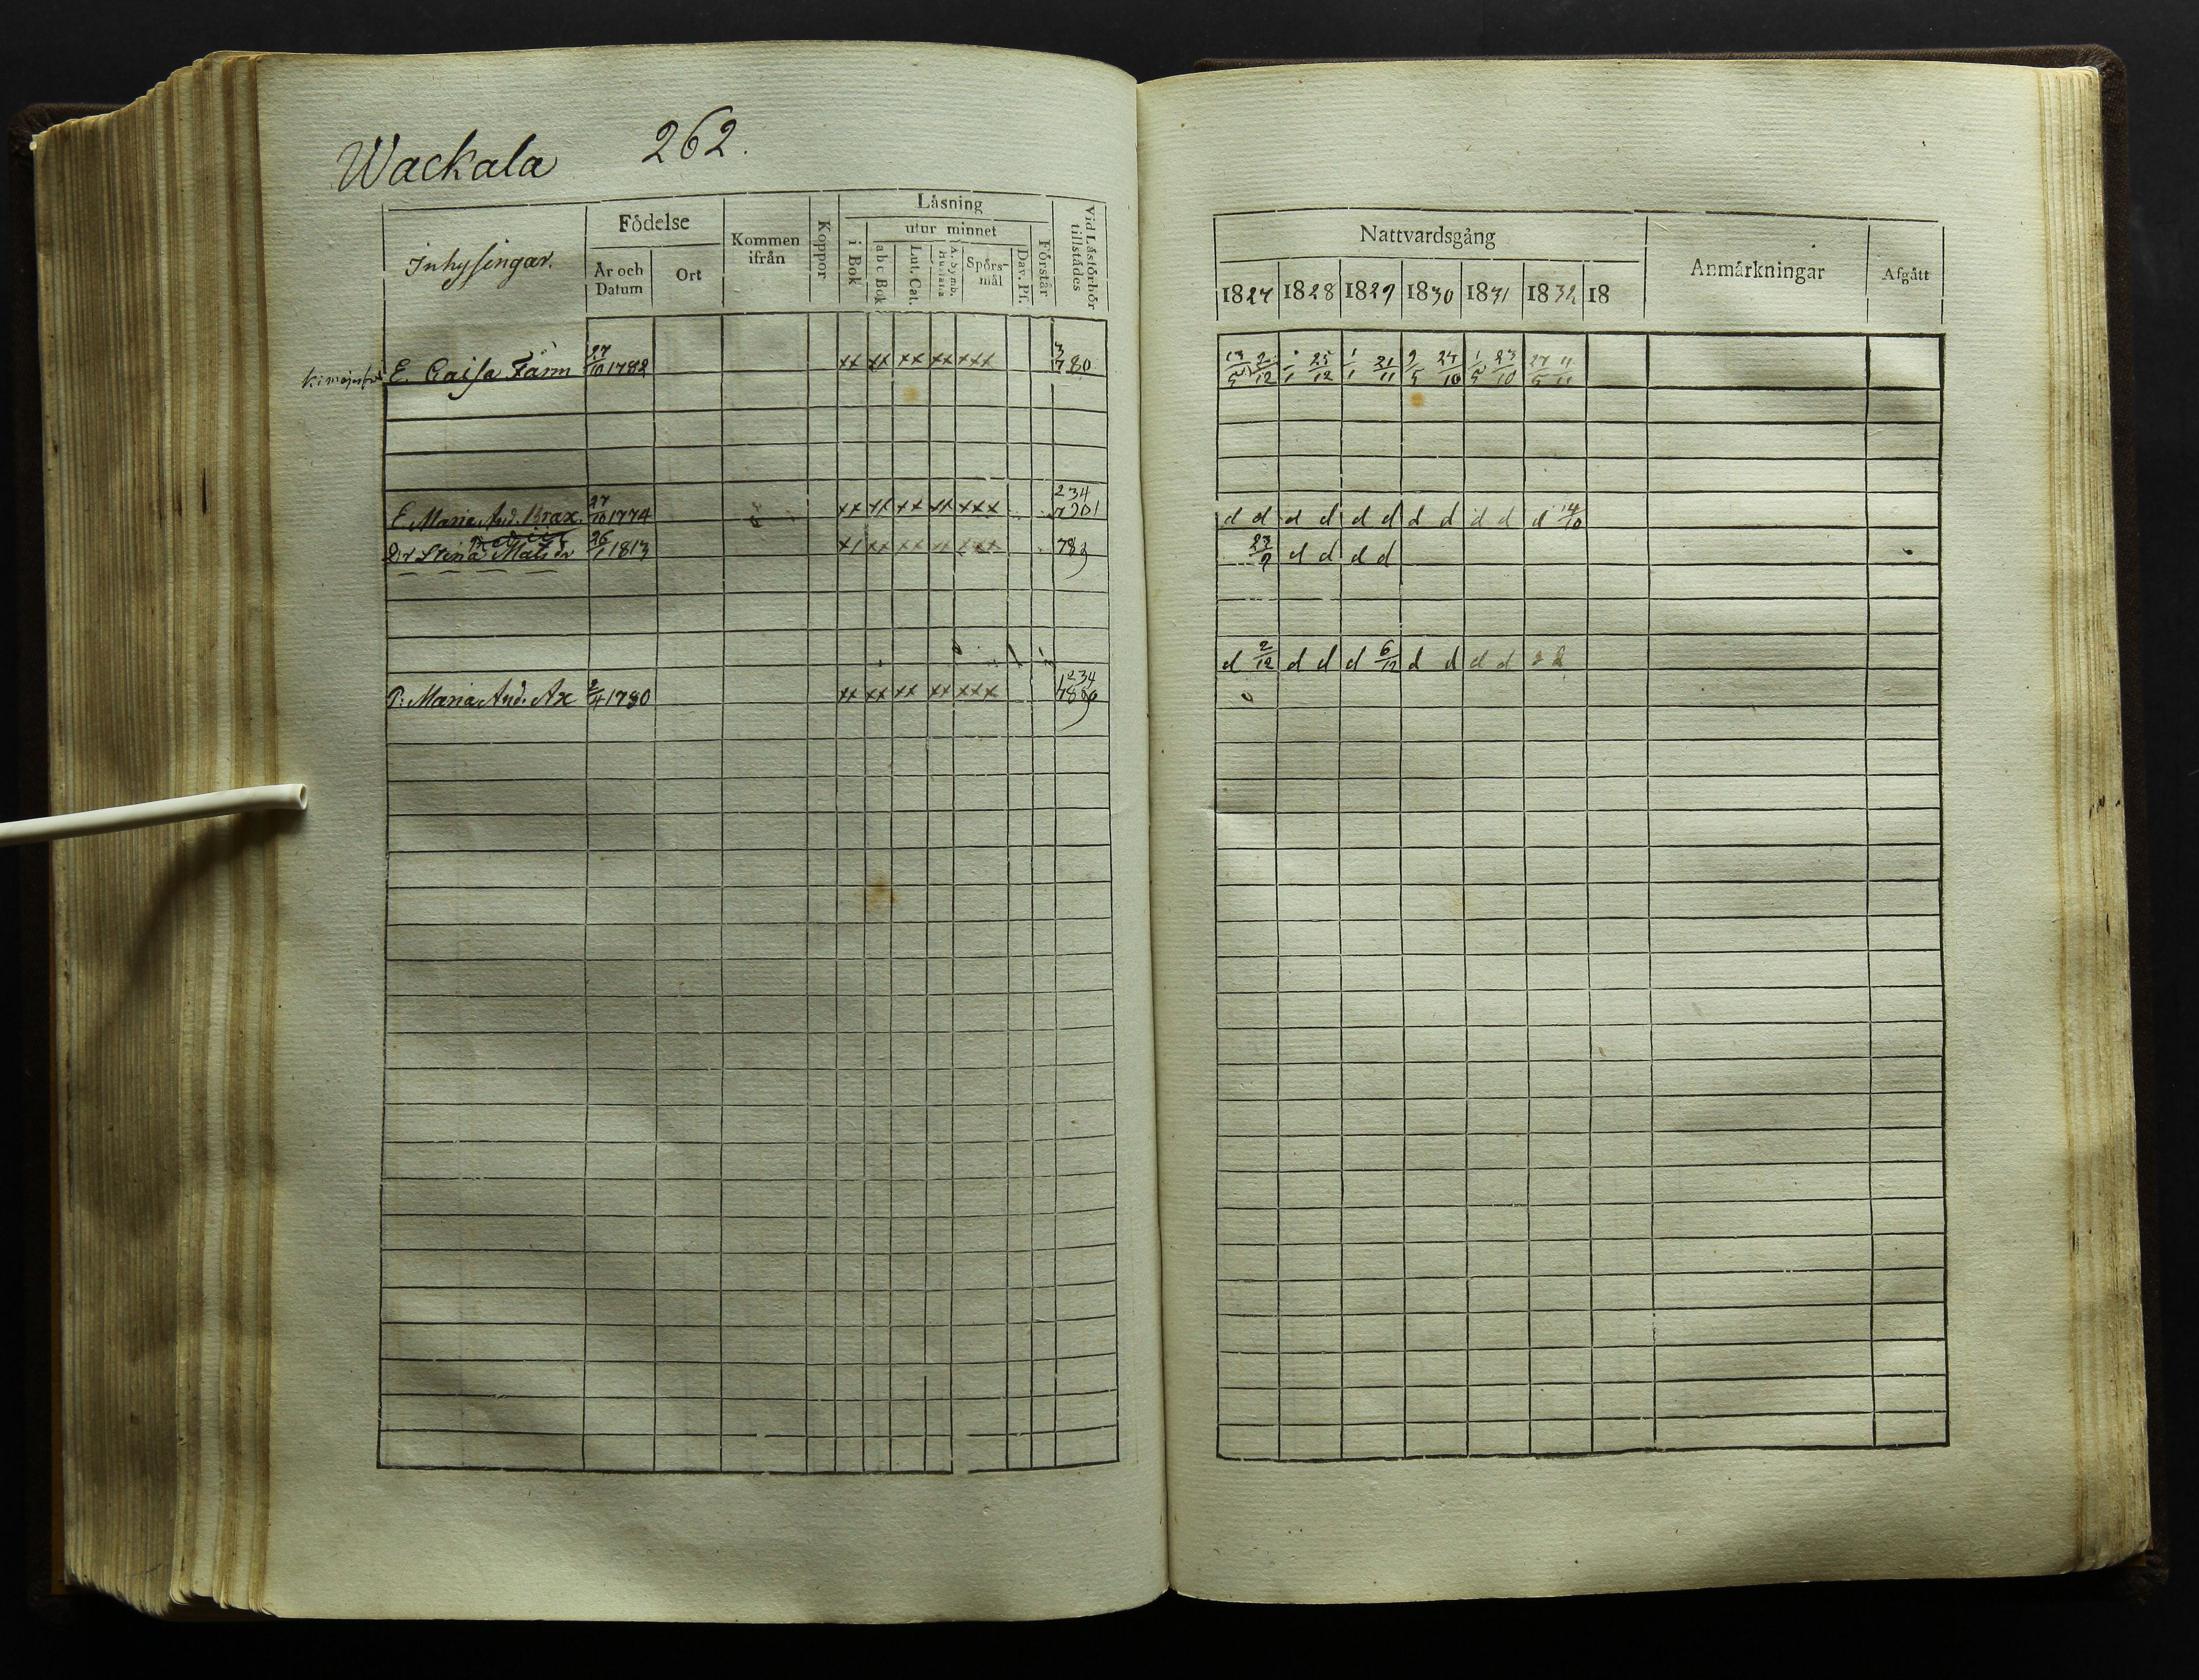 Wackala 262.
Inhysingar.
Födelse
År och Datum
Ort
Kommen ifrån
Koppor
Läsning
utur minnet
i Bok
abc Bok
Lut. Cat.
A. Symb. Hustafla
Spörs-mål
Dav. Ps.
Förstår
Vid Läsförhör tillstådes
E. Caisa Fänn 27/10 1782 xx xx xx xx xxx 3 780
E. Maria And. Brax 27/10 1774 xx xx xx xx xxx 234
Dr Stina Matsdr 26/1 1813 789
P. Maria And. Ax 2/4 1780 xx xx xx xx xxx 1234
Nattvardsgång
Anmärkningar
Afgått
1827 1828 1829 1830 1831 1832 18
13/5 2/12 25/12 1/1 21/11 9/5 24/10 1/5 23/10 27/5 11/11
d d d d d d d d d d d 14/10
23/9 d d d d
d 2/12 d d d 6/12 d d d d